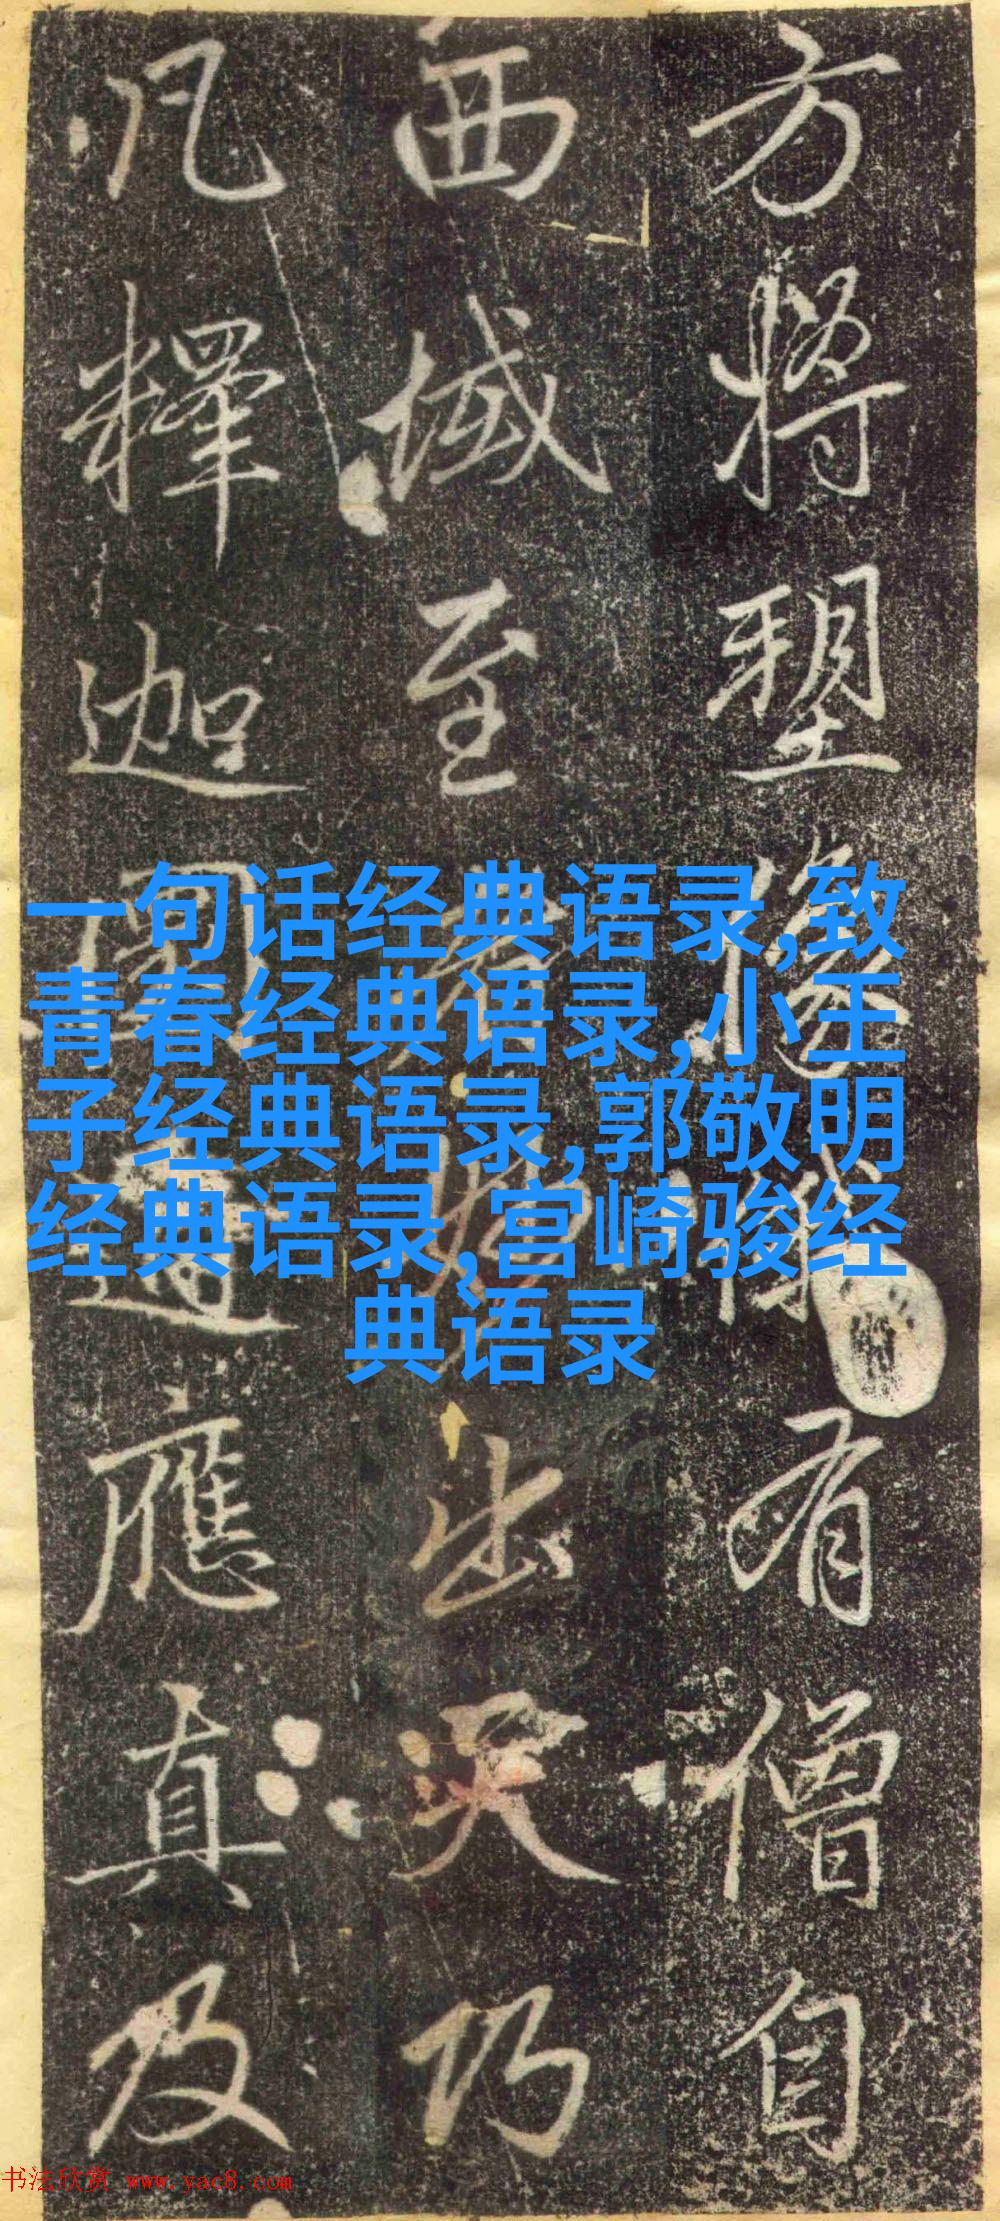 方將塑像
有僧自
西域至
出天乃
凡釋迦
應真及
一句话经典语录,致
青春经典语录,小王
子经典语录,郭敬明
经典语录,宫崎骏经
典语录
书法欣赏 www.yac8.com